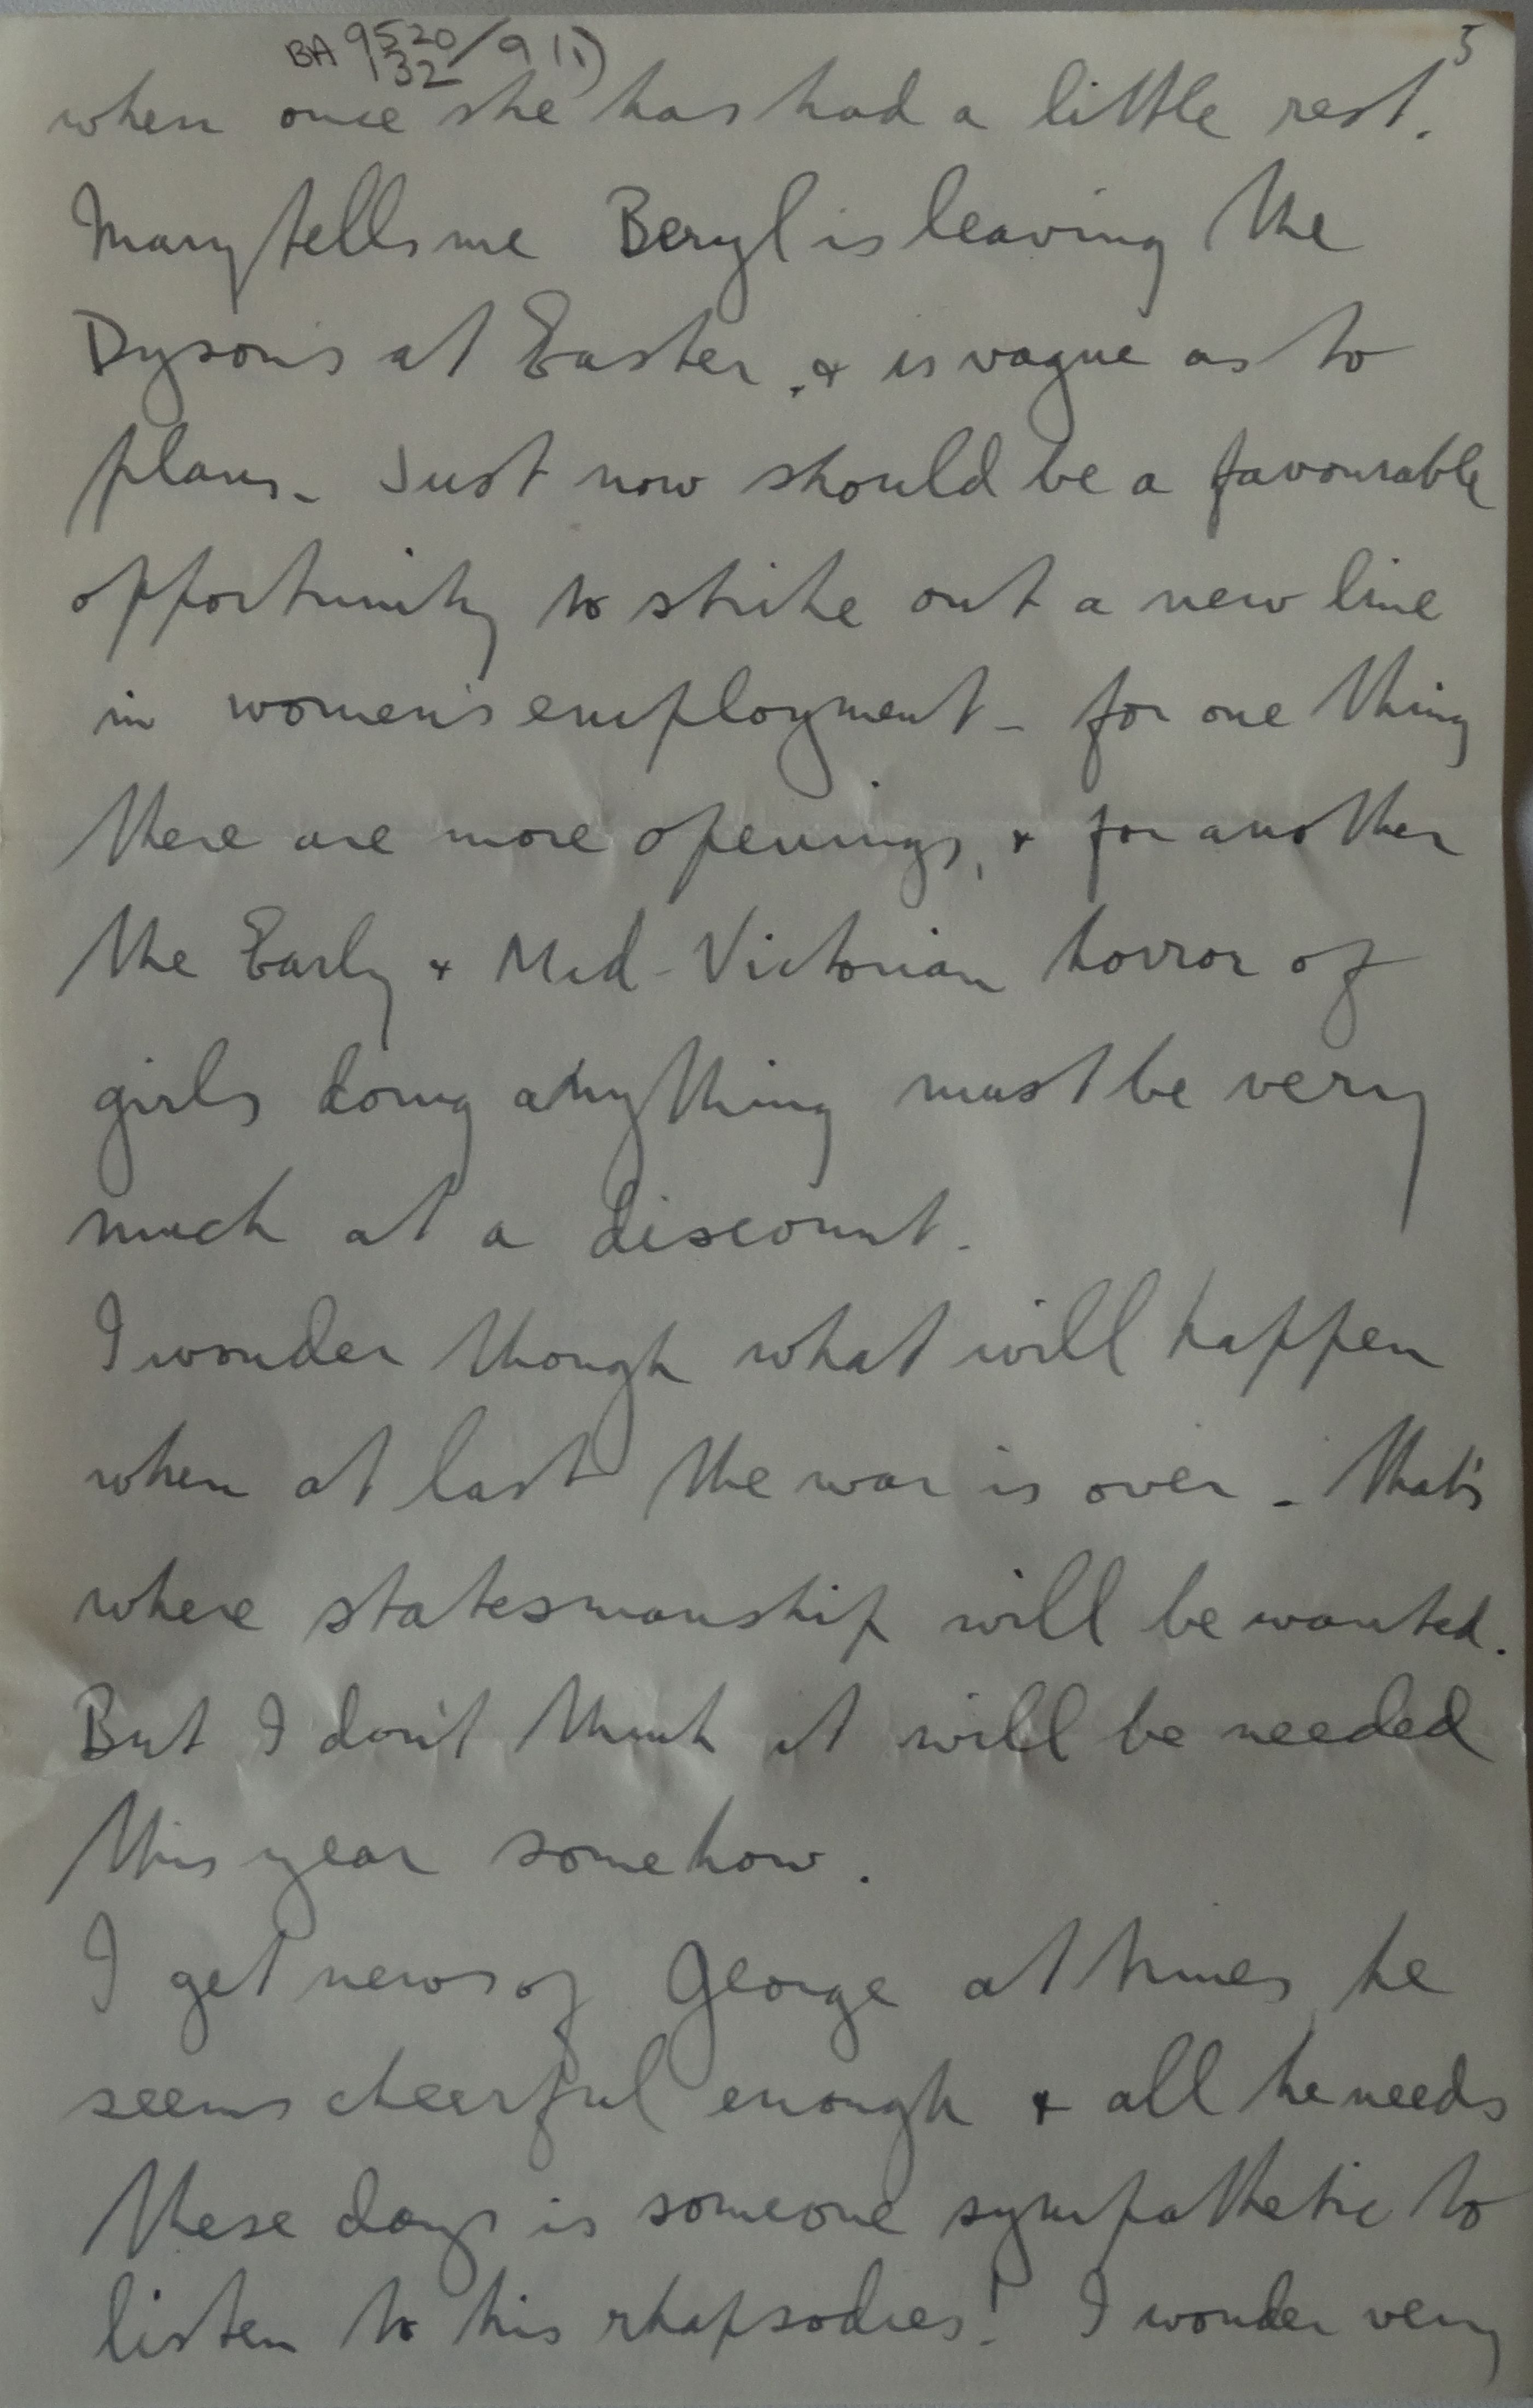 BA 9520/9 (1)
132
5
when once she has had a little rest.
Mary tells me Beryl is leaving the
Dyson's at Easter, & is vague as to
plans. Just now should be a favourable
opportunity to strike out a new line
in women's employment - for one thing
there are more openings, & for another
the Early & Mid-Victorian horror of
girls doing anything must be very
much at a discount.
I wonder though what will happen
when at last the war is over - that's
where statesmanship will be wanted.
But I don't think it will be needed
this year somehow.
I get news of George at times, he
seems cheerful enough & all he needs
these days is someone sympathetic to
listen to his rhapsodies! I wonder very